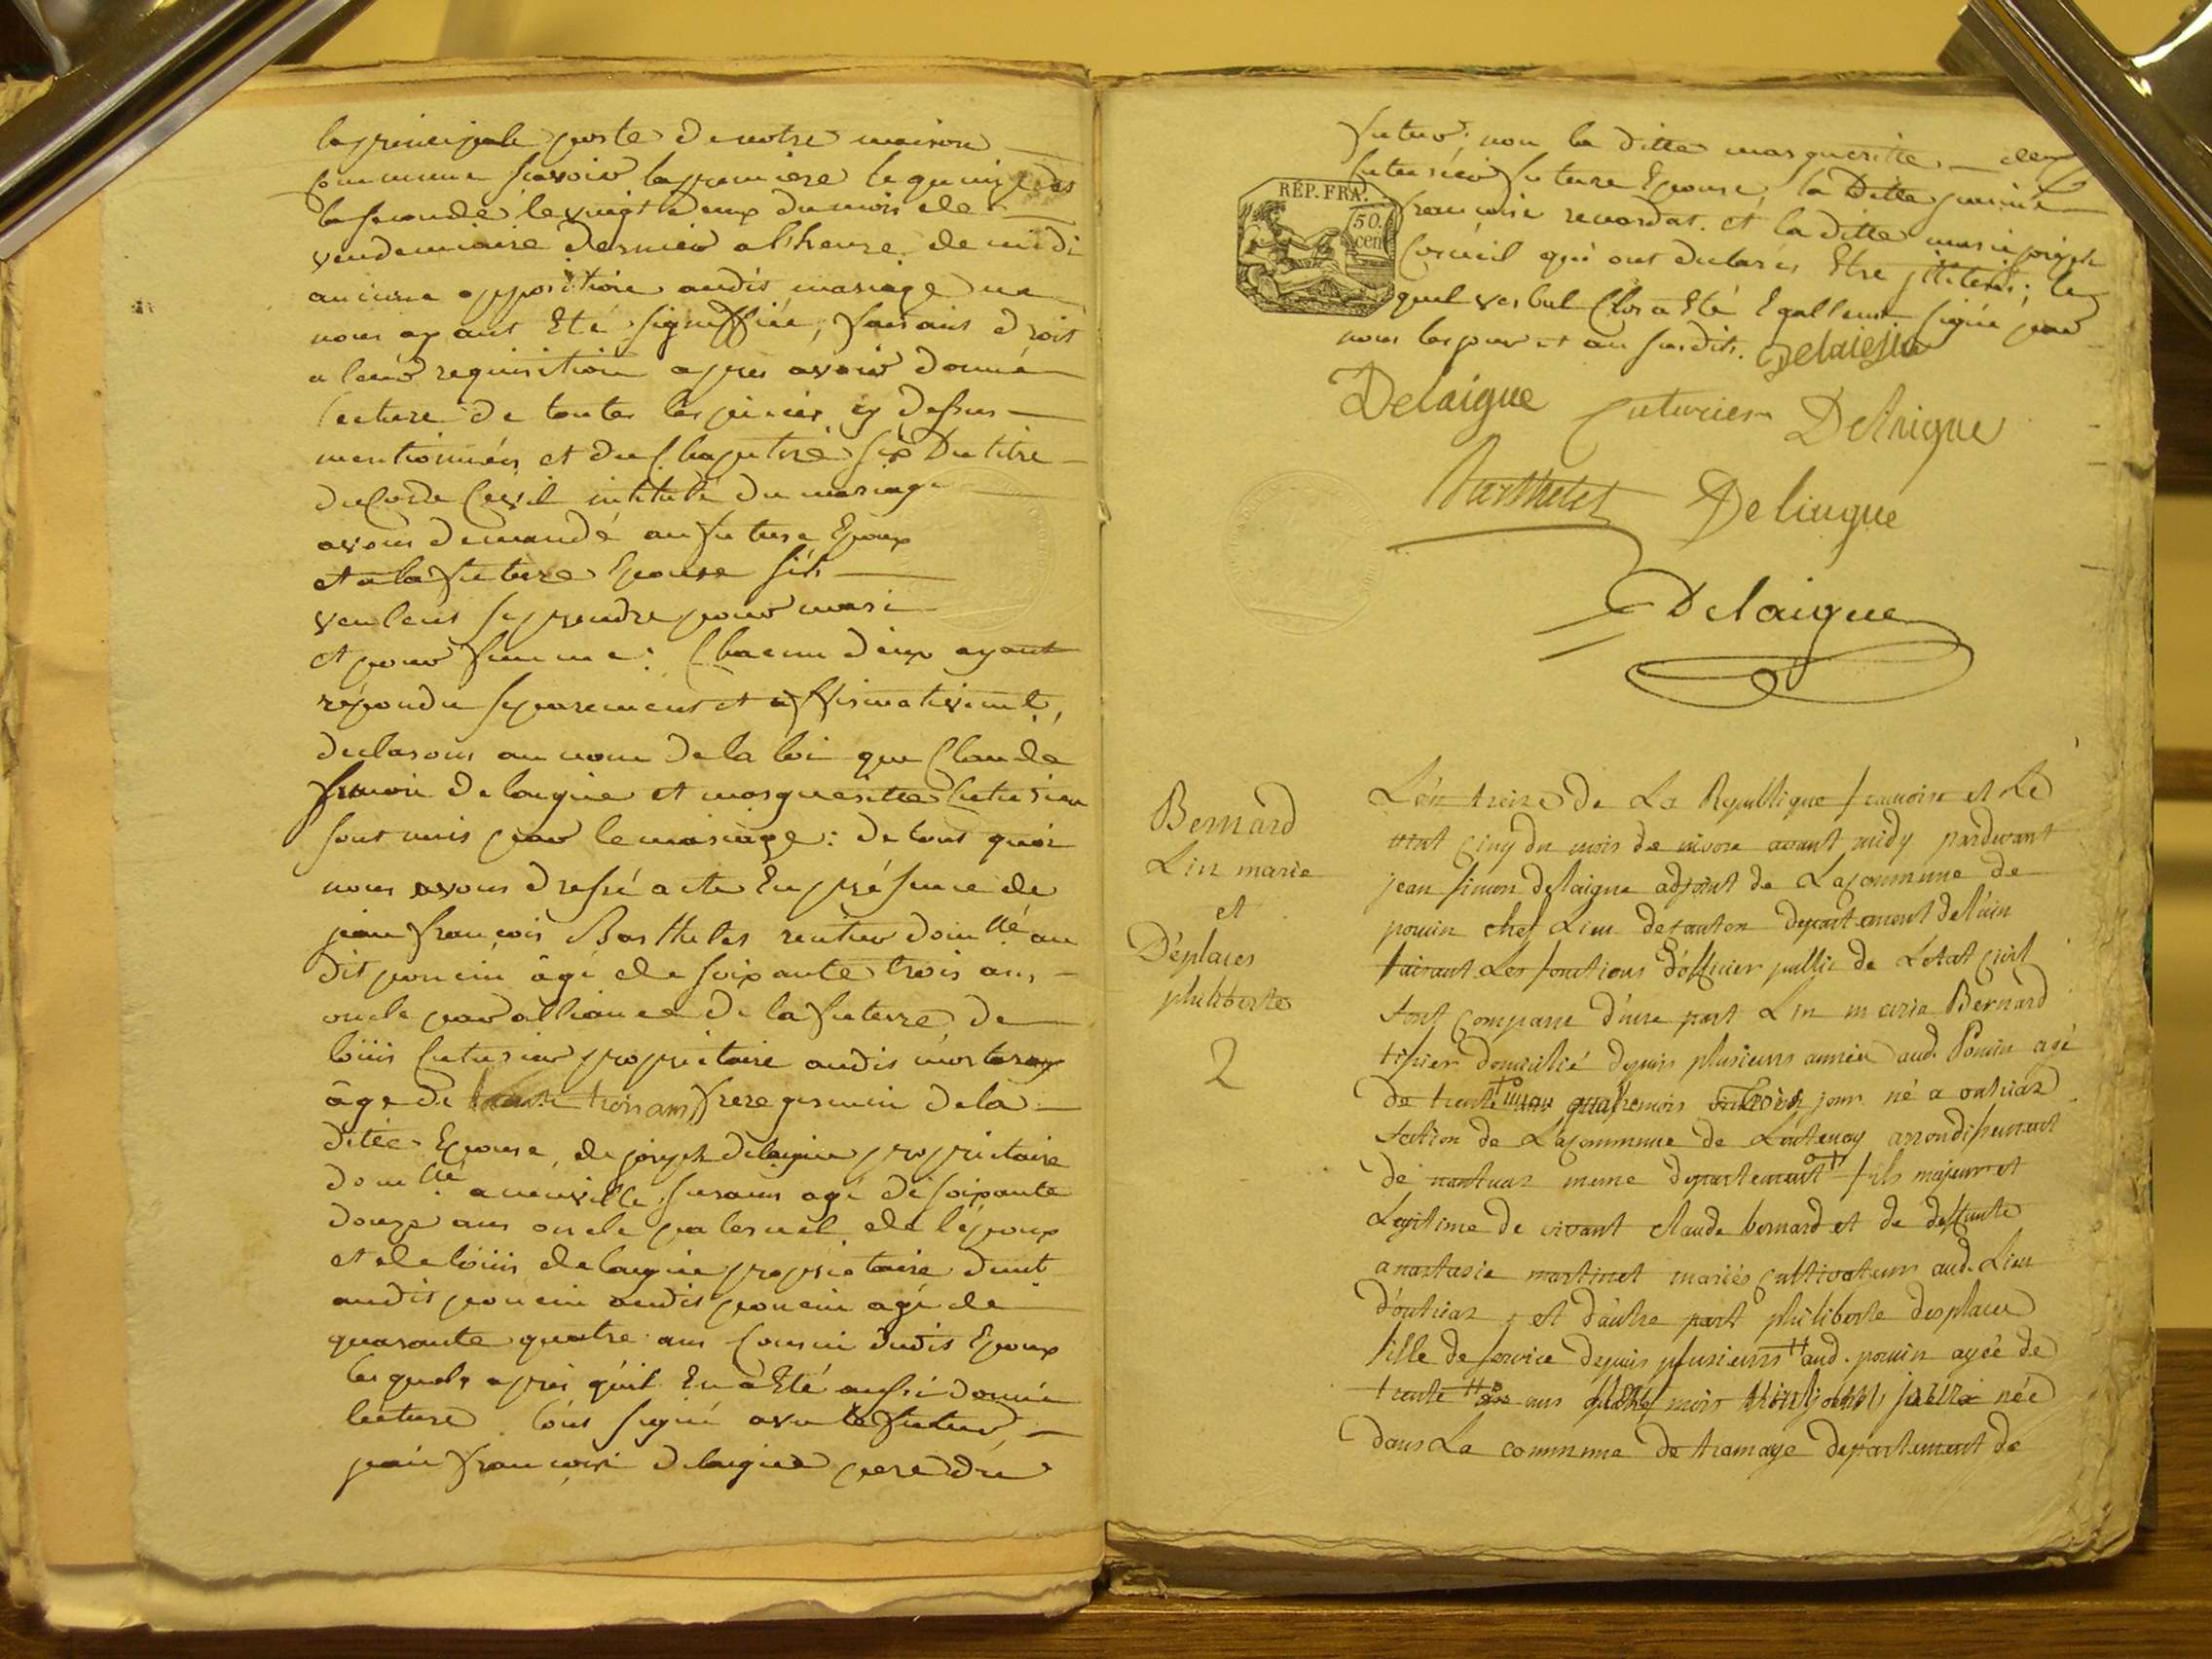 la principale porte de notre maison
Commune scavoir la premiere le quinze
la seconde le vingt deux du mois de
vendemiaire dernier a l'heure de midi
aucune opposition audit mariage ne
nous ayant Eté signiffiée, faisant droit
a leur requisition apres avoir donné
lecture de toutes les pieces cy dessus
mentionnées et du Chapitre six Du titre
du Code Civil intitulé du mariage
avons demandé au future Epoux
et a la future Epouse s'ils
veulent se prendre pour mari
et pour femme: Chacun d'eux ayant
repondu separement et affirmativement,
declarons au nom de la loi que Claude
Delaigue et margueritte Cuturier
sont unis par le mariage: de tout quoi
nous avons dressé acte En présence de
jean françois Barthelet rentier domllié au
dit poncin âgé de soixante trois ans
oncle par alliance de la future de
loüis Cuturier proprietaire audit
âgé de trois ans frere germain de la
dite Epouse, de joseph delaigue proprietaire
domllié a neuville sur ains agé de soixante
douze ans oncle paternel de l'époux
et de loüis delaigue proprietaire
audit poncin audit poncin agé de
quarante quatre ans Cousin dudit Epoux
lesquels après qu'il En a Eté aussi donné
lecture l'ont signé avec le futur
jean françois delaigue pere du
futur; non la ditte margueritte
Cuturier future Epouse, la Ditte
françoise et la ditte marie joseph
qui ont declarés Etre ; le
quel verbal Clos a Eté Egallement signé par
nous les jour et an susdits.
RÉP. FRA.
50.
cen
Delaigue Cuturier Delaigue
Barthelet Delaigue
Delaigue
Bernard
Lin marie
et
Déplaces
philiberte
2
L'én treize de La Republique françoise et Le
vint Cinq du mois de nivose avant midy pardevant
jean simon delaigne adjoint de La Commune de
poncin chef Lieu de Canton departement de l'ain
faisant Les fonctions d'officier public de L'état Civil
sont Comparu d'une part Lin marie Bernard
domicilié depuis plusieurs années aud. Poncin agé
de trente quatre mois trois jour né a outriaz
section de La Commune de Lantenay arrondissement
de nantuaz meme departement fils majeur et
Legitime de vivant claude bernard et de deffunte
anastasie martinet mariés Cultivateurs aud. Lieu
d'outriaz, et d'autre part philiberte desplaces
fille de service depuis plusieurs aud. poncin agée de
trente ans mois née
dans La commune de tramaye departement de